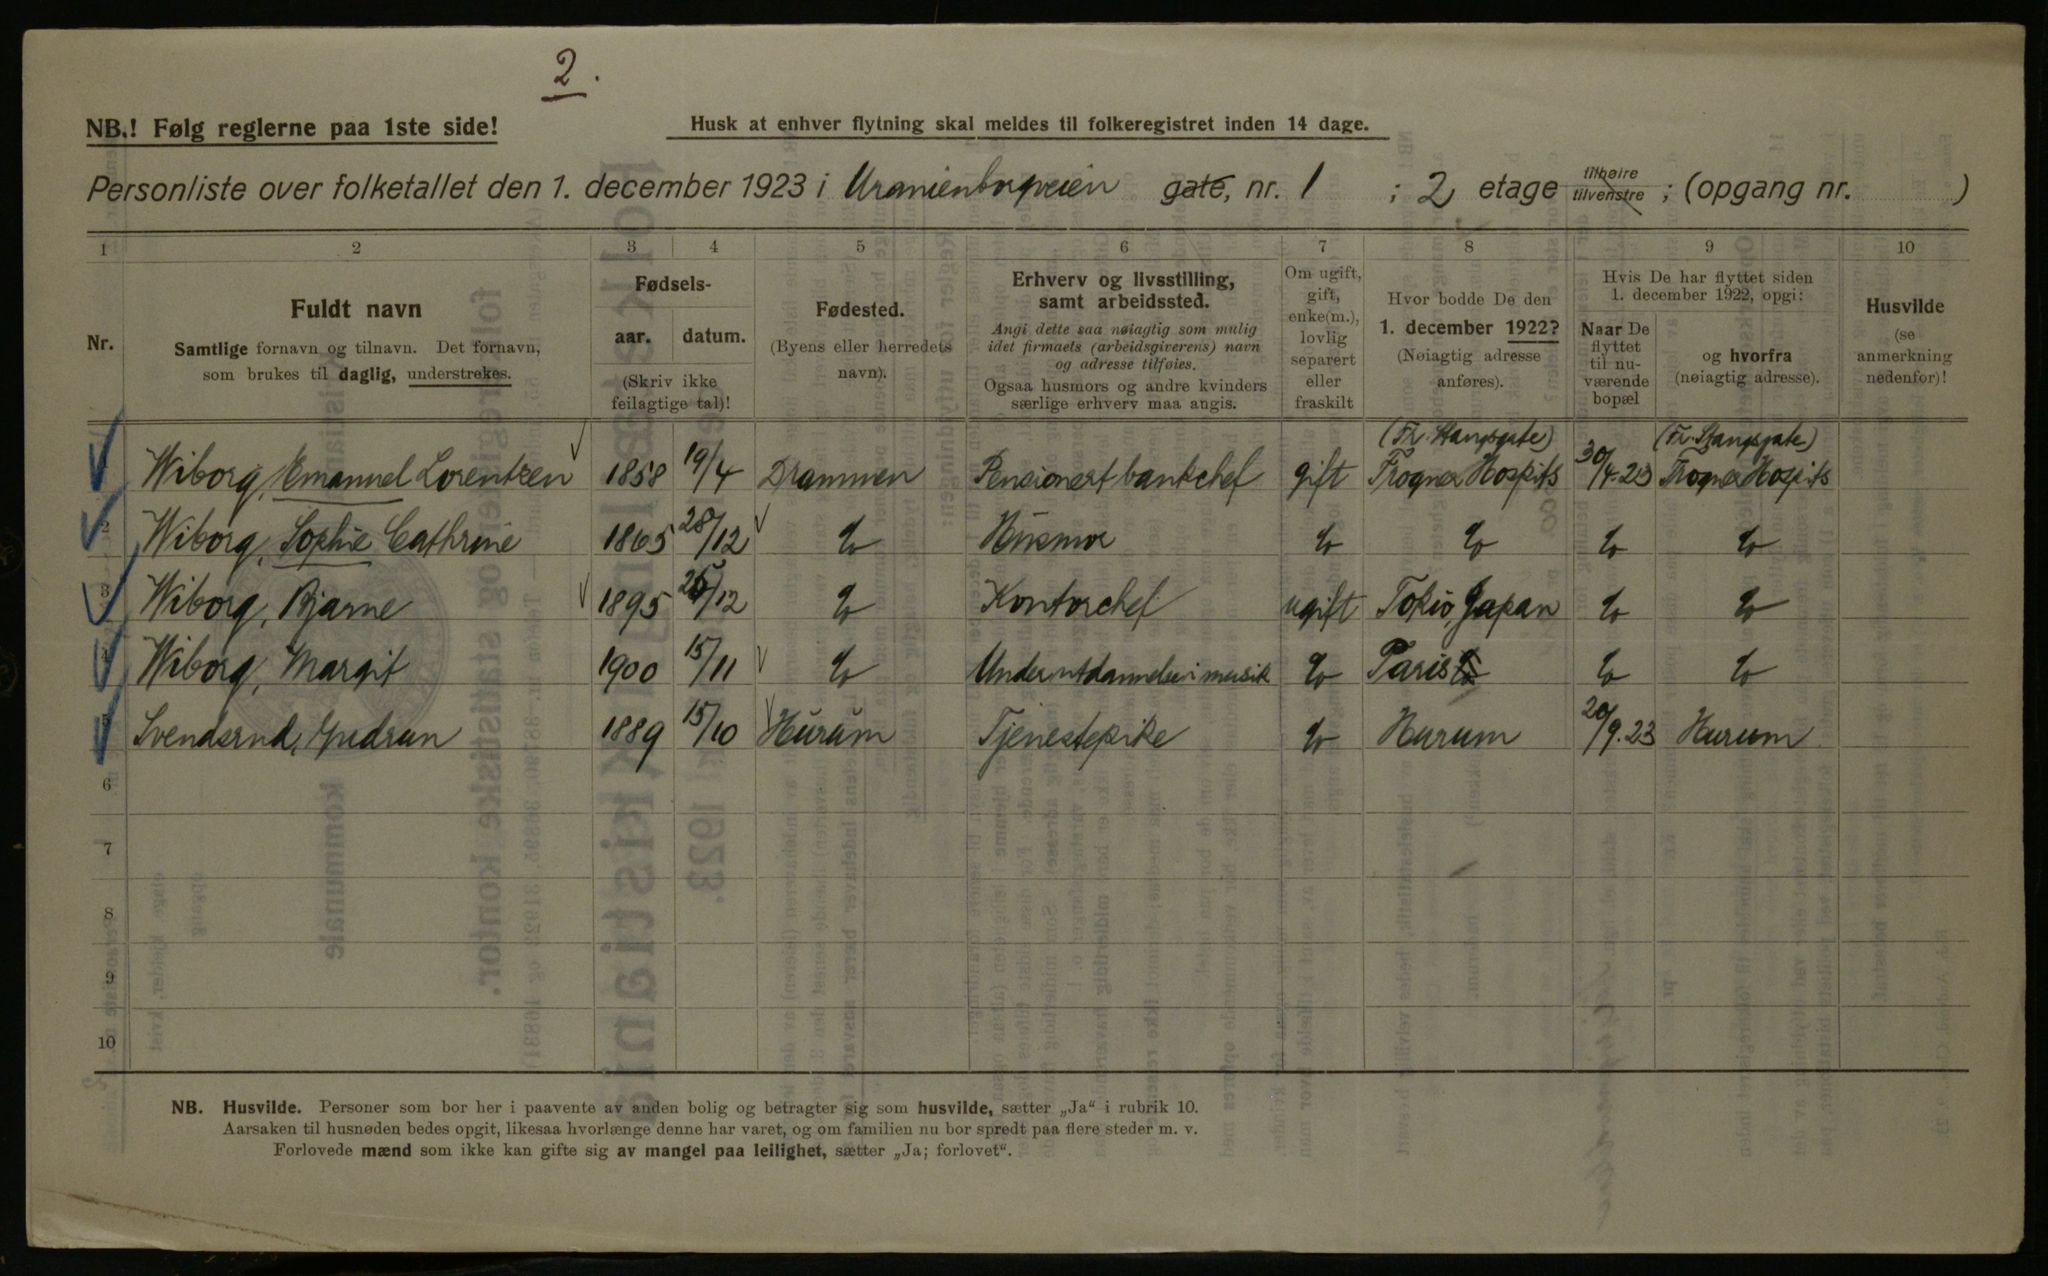 2.
NB.! Følg reglerne paa 1ste side!
Husk at enhver flytning skal meldes til folkeregistret inden 14 dage.
Personliste over folketallet den 1. december 1923 i Uranienborgveien gate, nr. 1 ; 2 etage tilhøire tilvenstre ; (opgang nr. )
1 2 3 4 5 6 7 8 9 10
Nr.
Fuldt navn
Samtlige fornavn og tilnavn. Det fornavn,
som brukes til daglig, understrekes.
Fødsels-
aar. datum.
(Skriv ikke
feilagtige tal)!
Fødested.
(Byens eller herredets
navn).
Erhverv og livsstilling,
samt arbeidssted.
Angi dette saa nøiagtig som mulig
idet firmaets (arbeidsgiverens) navn
og adresse tilføies.
Ogsaa husmors og andre kvinders
særlige erhverv maa angis.
Om ugift,
gift,
enke(m.),
lovlig
separert
eller
fraskilt
Hvor bodde De den
1. december 1922?
(Nøiagtig adresse
anføres).
Hvis De har flyttet siden
1. december 1922, opgi:
Naar De
flyttet
til nu-
værende
bopæl
og hvorfra
(nøiagtig adresse).
Husvilde
(se
anmerkning
nedenfor)!
(Fr. Stangsgate) (Fr. Stangsgate)
Wiborg, Emanuel Lorentzen 1858 19/4 Drammen Pensionert bankchef gift Frogner Hospits 30/4.23 Frogner Hospits
2 Wiborg, Sophie Cathrine 1865 28/12 do Husmor do do do do
3 Wiborg, Bjarne 1895 /12 do Kontorchef ugift Tokio, Japan do do
4 Wiborg, Margit 1900 15/11 do Under utdannelse i musik do Paris do do
5 Svendsrud, Gudrun 1889 15/10 Hurum Tjenestepike do Hurum 20/9.23 Hurum
6
7
8
9
10
NB. Husvilde. Personer som bor her i paavente av anden bolig og betragter sig som husvilde, sætter „Ja“ i rubrik 10.
Aarsaken til husnøden bedes opgit, likesaa hvorlænge denne har varet, og om familien nu bor spredt paa flere steder m. v.
Forlovede mænd som ikke kan gifte sig av mangel paa leilighet, sætter „Ja; forlovet“.